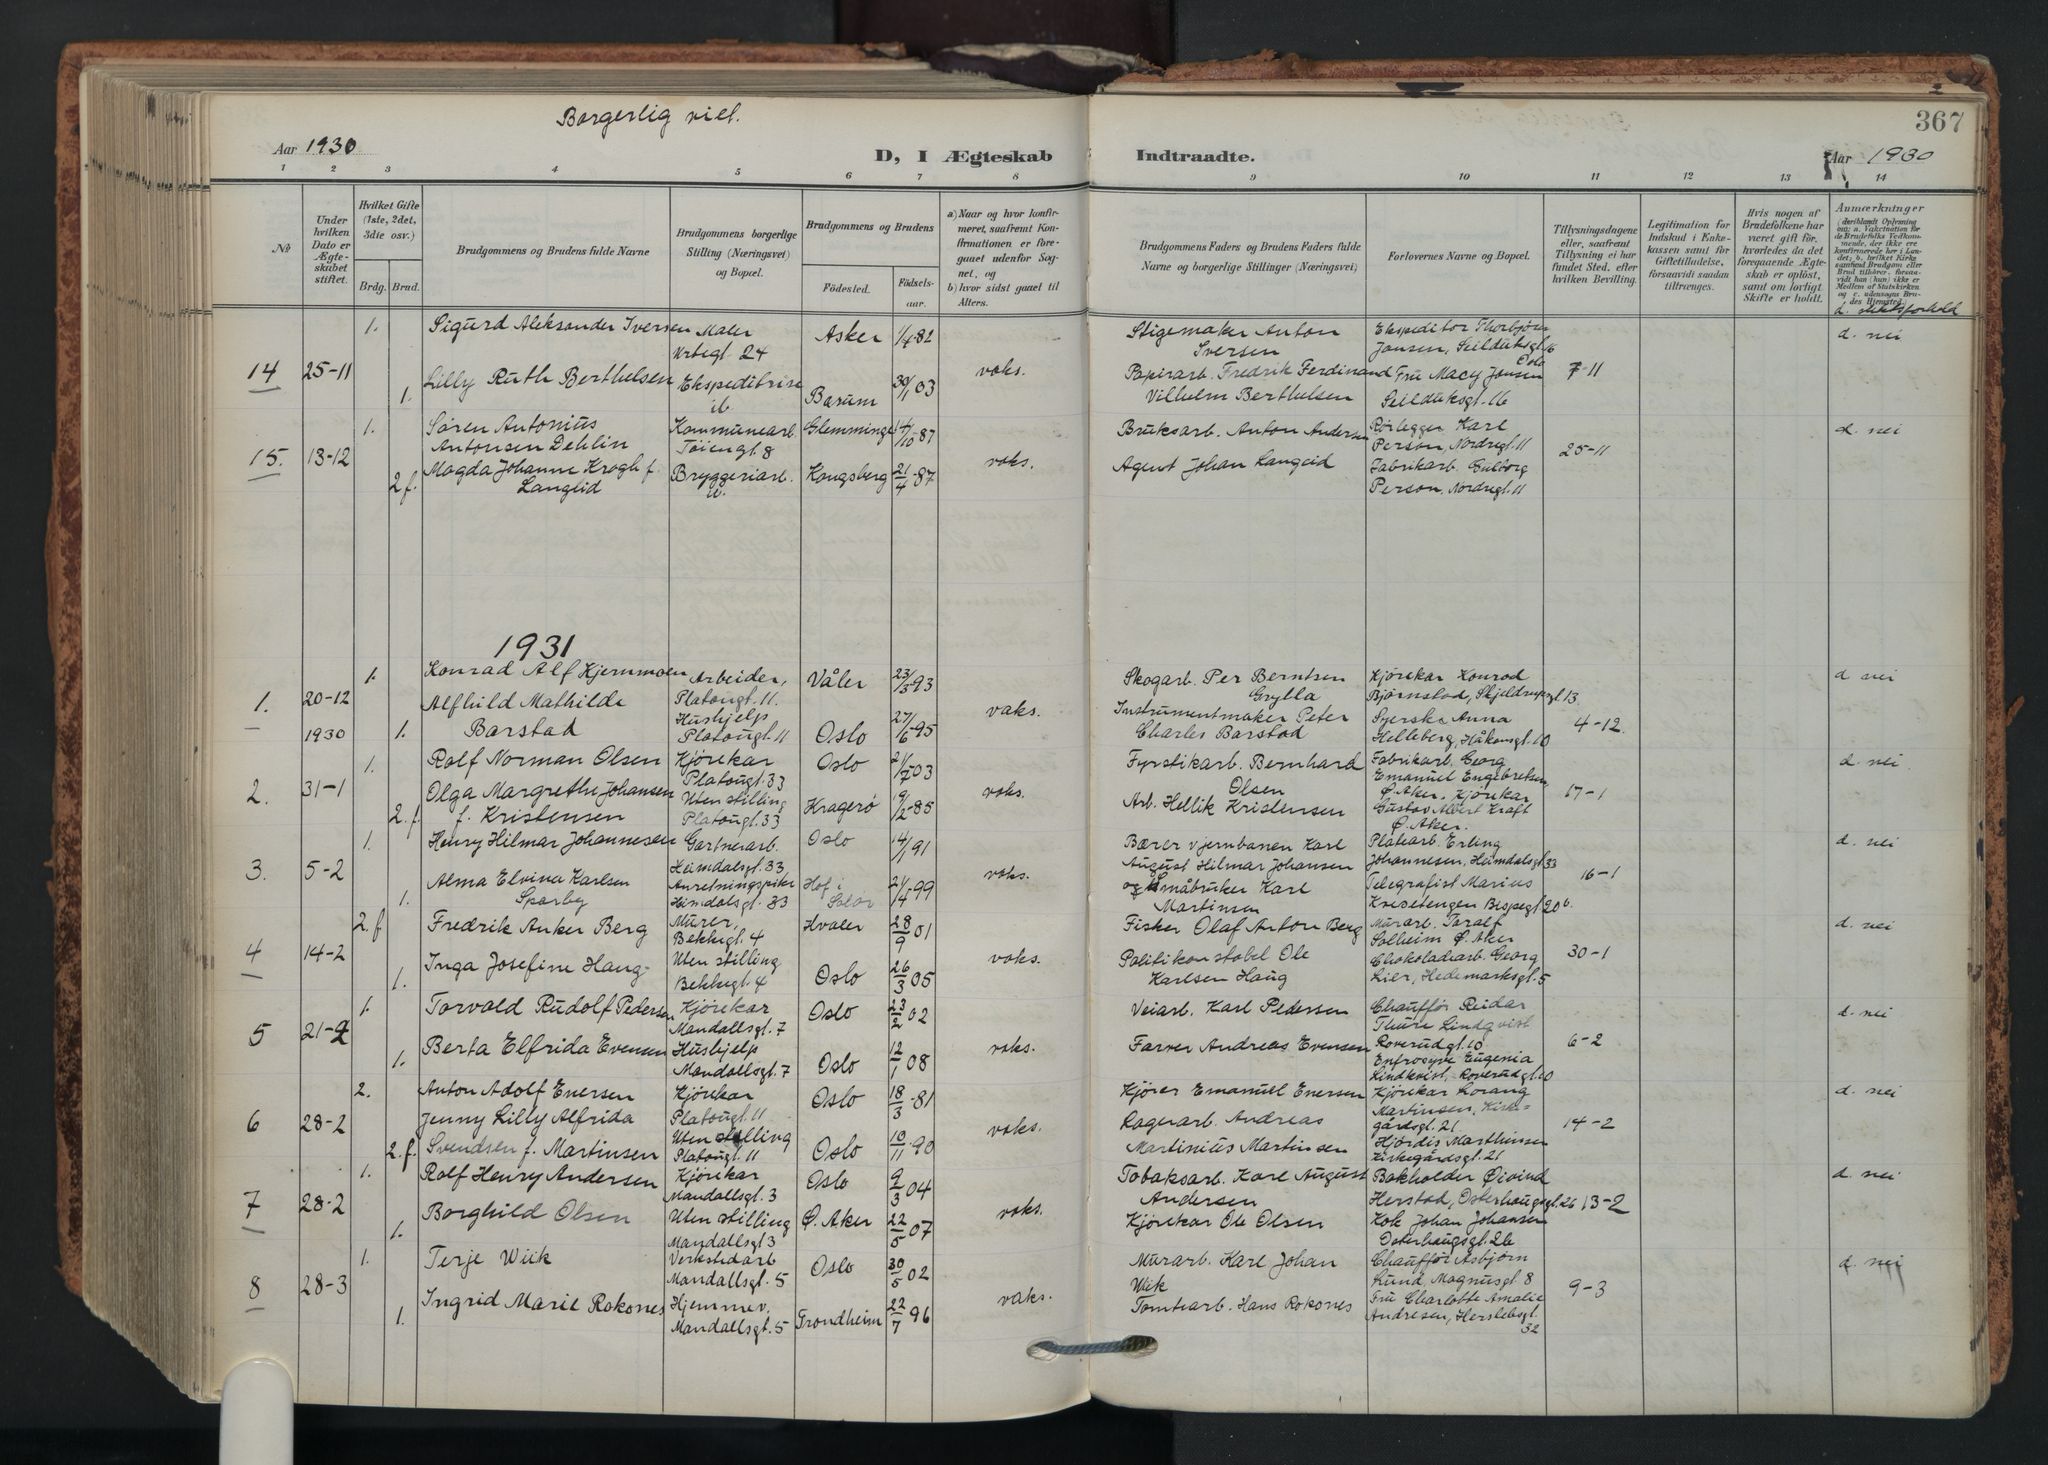 Borgerlig viet.
367
Aar 1930
D, I Ægteskab
Indtraadte.
Aar 1930
1 2 3 4 5 6 7 8 9 10 11 12 13 14
No
Under hvilken Dato er Ægteskabet stiftet.
Hvilket Gifte (1ste, 2det, 3die osv.)
Brdg. Brud.
Brudgommens og Brudens fulde Navne
Brudgommens borgerlige Stilling (Næringsvei) og Bopæl.
Brudgommens og Brudens
Fødested.
Fødselsaar.
a) Naar og hvor konfirmeret, saafremt Konfirmationen er foregaaet udenfor Sognet, og
b) hvor sidst gaaet til Alters.
Brudgommens Faders og Brudens Faders fulde Navne og borgerlige Stillinger (Næringsvei)
Forlovernes Navne og Bopæl.
Tillysningsdagene eller, saafremt Tillysning ei har fundet Sted, efter hvilken Bevilling.
Legitimation for Indskud i Enkekassen samt for Giftetilladelse, forsaavidt saadan tiltrænges.
Hvis nogen af Brudefolkene har været gift før, hvorledes da det foregaaende Ægteskab er opløst, samt om lovligt Skifte er holdt.
Anmærkninger
1. Sigurd Aleksander Iversen Maler Asker 1/4-82 Stigemaker Anton Ekspeditør Thorbjørn d. nei
Urtegt. 24 Iversen Jansen, Seilduksgt. 16 Oslo
14 25-11 Lilly Ruth Berthelsen Ekspeditrise 30/1 03 vaks. Papirarb. Fredrik Ferdinand Fru Macy Jansen 7-11
1. ib Bærum Vilhelm Berthelsen Seilduksgt. 16
1. Søren Antonius Kommunearb. Glemminge 14/10-87 Bruksarb. Anton Andersen Rørlegger Karl d. nei
Antonsen Dehlin Tøiengt 8 Person, Nordregt. 11
15. 13-12 Magda Johanne Krogh f. Bryggeriarb. Kongsberg 21/4-87 vaks. Agent Johan Langeid Fabrikarb. Gulborg 25-11
2 f. Langlid Person, Nordregt. 11
1931
1. Konrad Alf Kjernmoen Arbeider, Våler 23/3-93 Skogarb. Per Berntsen Kjørekar Konrad d nei
Platougt. 11. Grylla Bjørnstad, Skjeldrupsgt 13
1. 20-12 Alfhild Mathilde Hushjelp 27/6-95 vaks. Instrumentmaker Peter Syerske Anna 4-12
1930 1. Barstad Platougt. 11 Oslo Charles Barstad Helleberg, Håkonsgt. 10
1. Rolf Norman Olsen Kjørekar Oslo 21/7 03 Fyrstikarb. Bernhard Fabrikarb. Georg d. nei
Platougt. 33 Olsen Emanuel Engebretsen
2. 31-1 Olga Margrethe Johansen Uten stilling Kragerø 19/2-85 vaks. Arb. Hellik Kristensen Ø. Aker, Kjørekar 17-1
2. f f. Kristensen Platougt. 33 Gustav Albert Kraft Ø. Aker.
1. Henry Hilmar Johannesen Gartnerarb. Oslo 14/1 91 Bærer v jernbanen Karl Platearb. Erling d. nei
Heimdalsgt. 33 August Hilmar Johansen Johannesen, Heimdalsgt 33
3. 5-2 Alma Elvina Karlsen Anretningspike Hof i 21/4-99 vaks. og Småbruker Karl Telegrafist Marius 16-1
1. Sparby Heimdalsgt. 33 Solør Martinsen Bispegt. 20 b.
2. f Fredrik Anker Berg Murer, Hvaler 28/9 01 Fisker Olaf Anton Berg Murarb. Toralf d. nei
Bekkegt. 4 Solheim Ø. Aker
4 14-2 Inga Josefine Haug Uten stilling 26/3 05 vaks. Politikonstabel Ole Chokoladearb. Georg 30-1
1. Bekkegt. 4 Oslo Karlsen Haug Lier, Hedemarksgt. 5
1. Torvald Rudolf Pedersen Kjørekar Oslo 23/2 02 Veiarb. Karl Pedersen Chauffør Reidar d. nei
Mandallsgt. 7 Thure Lindqvist
5 21-2 Berta Elfrida Evensen Hushjelp 12/1 08 vaks. Farver Andreas Evensen Roverudgt. 10 6-2
1. Mandallsgt. 7 Oslo Enfrosyve Eugenia
Lindkvist, Roverudgt. 10
2. Anton Adolf Enersen Kjørekar Oslo 18/3-81 Kjører Emanuel Enersen Kjørekar Lorang d. nei
Platougt. 11 Martinsen, Kirke-
6 28-2 Jenny Lilly Alfrida Uten stilling 10/11-90 vaks. Lagerarb. Andreas gårdsgt. 21 14-2
2. f. Svendsen f. Martinsen Platougt. 11 Oslo Martinius Martinsen Hjørdis Marthinsen
Kirkegårdsgt. 21
1. Rolf Henry Andersen Kjørekar Oslo 9/3 04 Tobaksarb. Karl August Bokholder Øivind d. nei
Mandallsgt. 3 Andersen Herstad, Osterhaugsgt. 26
7 28-2 Borghild Olsen Uten stilling Ø. Aker 22/5 07 vaks. Kjørekar Ole Olsen Kok Johan Johansen 13-2
1. Mandallsgt 3 Osterhaugsgt. 26
1. Terje Wiik Verkstedarb Oslo 30/5 02 Murarb. Karl Johan Chauffør Asbjørn d. nei
Mandallsgt. 5 Wiik Lund, Magnusgt. 8
8 28-3 Ingrid Marie Rokones Hjemmev. 22/7 96 vaks. Tomtearb. Hans Rokones Fru Charlotte Amalie 9-3
1. Mandallsgt. 5 Trondheim Andresen, Herslebsgt. 32